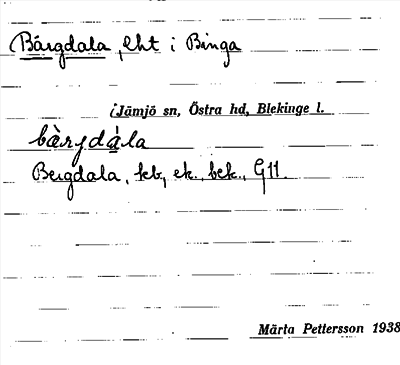 Bärgdala, lht i Binga
i Jämjö sn, Östra hd, Blekinge l.
bàrgdála
Bergdala, feb., ek., bek., G11.
Märta Pettersson 1938